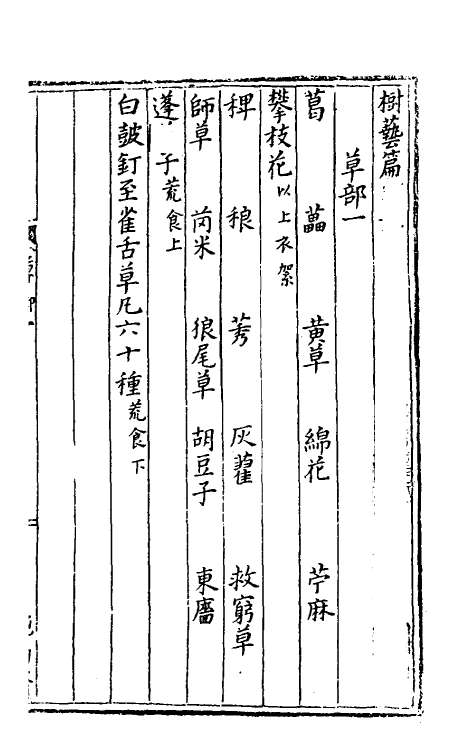 樹藝篇
草部一
葛 藟 黄草 綿花 苧麻
攀枝花以上衣絮
稗 稂 莠 灰藋 救窮草
師草 茼米 狼尾草 胡豆子 東廧
蓬 子荒食上
白皷釘至雀舌草凡六十種荒食下